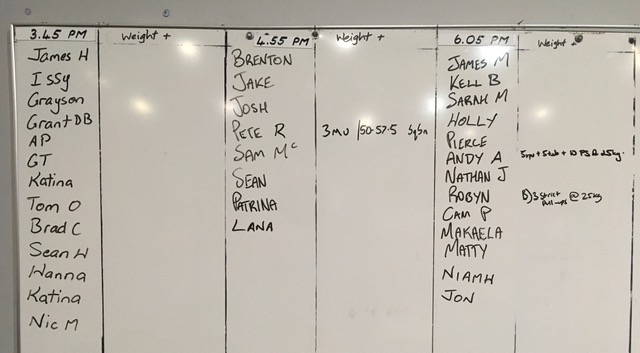 3.45 PM
Weight +
James H
Issy
Grayson
Grant DB
AP
GT
Katina
Tom O
Brad C
Sean W
Wanna
Katina
Nic M
4.55 PM
Weight +
BRENTON
JAKE
JOSH
PETE R 3mu /50-57.5 SqSn
SAM Mc
SEAN
PATRINA
LANA
6.05 PM
Weight +
JAMES M
KELL B
SARAH M
HOLLY
PIERCE
ANDY A
NATHAN J
ROBYN B)3 strict
pull-ups @ 25kg
CAM P
MAKAELA
MATTY
NIAMH
JON